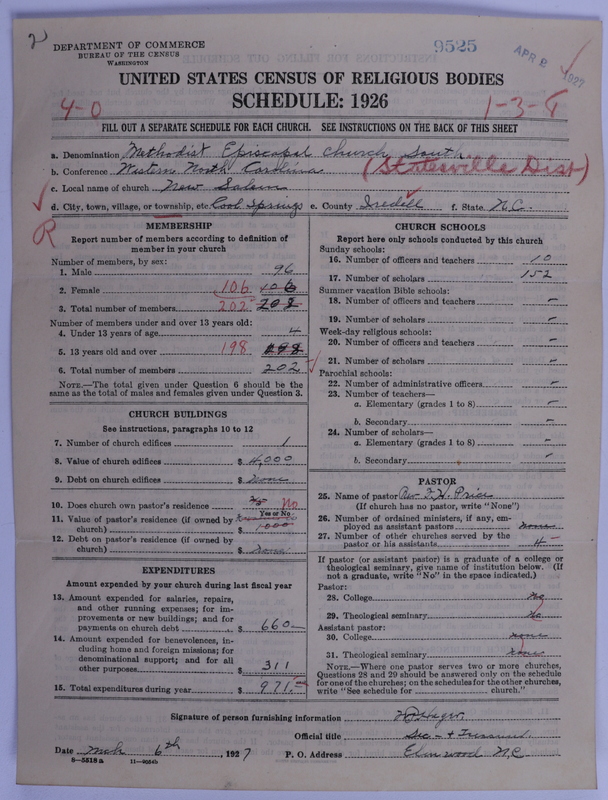 2
DEPARTMENT OF COMMERCE
BUREAU OF THE CENSUS
WASHINGTON
9525
APR 2 1927
UNITED STATES CENSUS OF RELIGIOUS BODIES
SCHEDULE: 1926
4-0
1-3-4
FILL OUT A SEPARATE SCHEDULE FOR EACH CHURCH. SEE INSTRUCTIONS ON THE BACK OF THIS SHEET
a. Denomination Methodist Episcopal Church South
b. Conference Western North Carolina (Statesville Dist)
c. Local name of church New Salem
d. City, town, village, or township, etc. Cool Springs e. County Iredell f. State N.C.
R
MEMBERSHIP
Report number of members according to definition of member in your church
Number of members, by sex:
1. Male 96
2. Female 106 106
3. Total number of members 202 202
Number of members under and over 13 years old:
4. Under 13 years of age 4
5. 13 years old and over 198 198
6. Total number of members 202
NOTE.—The total given under Question 6 should be the same as the total of males and females given under Question 3.
CHURCH BUILDINGS
See instructions, paragraphs 10 to 12
7. Number of church edifices 1
8. Value of church edifices $ 4,000
9. Debt on church edifices $ None
10. Does church own pastor's residence No
Yes or No
11. Value of pastor's residence (if owned by church) $ 1000
12. Debt on pastor's residence (if owned by church) $ None
EXPENDITURES
Amount expended by your church during last fiscal year
13. Amount expended for salaries, repairs, and other running expenses; for improvements or new buildings; and for payments on church debt $ 660
14. Amount expended for benevolences, including home and foreign missions; for denominational support; and for all other purposes $ 311
15. Total expenditures during year $ 971
CHURCH SCHOOLS
Report here only schools conducted by this church
Sunday schools:
16. Number of officers and teachers 10
17. Number of scholars 152
Summer vacation Bible schools:
18. Number of officers and teachers –
19. Number of scholars –
Week-day religious schools:
20. Number of officers and teachers –
21. Number of scholars –
Parochial schools:
22. Number of administrative officers –
23. Number of teachers—
a. Elementary (grades 1 to 8) –
b. Secondary –
24. Number of scholars—
a. Elementary (grades 1 to 8) –
b. Secondary –
PASTOR
25. Name of pastor Rev. Price
(If church has no pastor, write "None")
26. Number of ordained ministers, if any, employed as assistant pastors none
27. Number of other churches served by the pastor or his assistants 4
If pastor (or assistant pastor) is a graduate of a college or theological seminary, give name of institution below. (If not a graduate, write "No" in the space indicated.)
Pastor:
28. College No
29. Theological seminary No
Assistant pastor:
30. College none
31. Theological seminary none
NOTE.—Where one pastor serves two or more churches, Questions 28 and 29 should be answered only on the schedule for one of the churches; on the schedules for the other churches, write "See schedule for ........ church."
Signature of person furnishing information Hager
Official title Sec - +
Date Mch 6th, 1927 P. O. Address Elmwood N.C.
8—5518 a